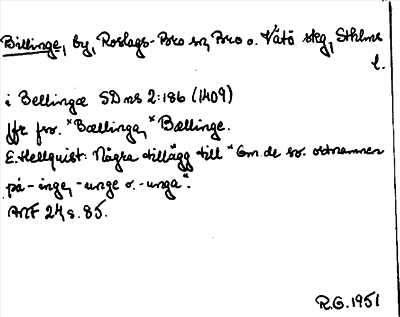 Billinge, by, Roslags-Bro sn, Bro o. Vätö skg, Sthlms
l.
i Bellingæ SD ns 2:186 (1409)
jfr fsv. *Bællinga, *Bællinge.
E. Hellquist: Några tillägg till "Om de sv. ortnamnen
på -inge, -unge o. -unga".
ANF 24, s. 85.
R.G. 1951